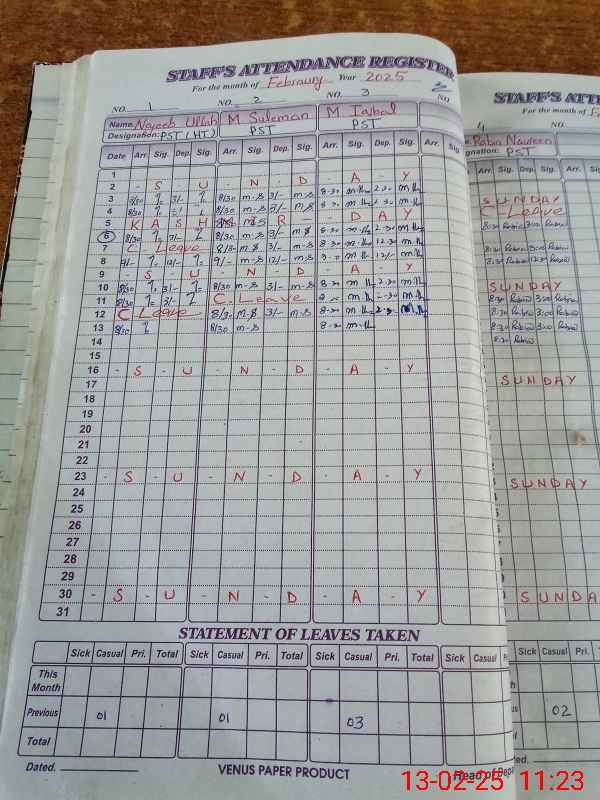 STAFF'S ATTENDANCE REGISTER
For the month of February Year 2025
NO. 1 NO. 2 NO. 3 NO.
Name Najeeb Ullah M Suleman M Iqbal
Designation: PST (HT) PST PST
Date Arr. Sig. Dep. Sig. Arr. Sig. Dep. Sig. Arr. Sig. Dep. Sig. Arr. Sig.
1
2 - S - U - N - D - A - Y
3 8/30 3/- 8/30 m-s 3/- m-s 8-30 m-Ih 2-30 m-Ih
4 8/30 3/- 8/30 m-s 3/- m-s 8-30 m-Ih m-Ih
5 K A S H M I R D A Y
6 8/30 3/- 8/30 m-s 3/- m-s 8-30 m-Ih 2-30 m-Ih
7 C - Leave 8/30 m-s 3/- m-s 8-30 m-Ih 12-30 m-Ih
8 9/- 12/- 9/- m-s 12/- m-s m-Ih 12/- m-Ih
9 - S - U - N - D - A - Y
10 8/30 3/- 8/30 m-s 3/- m-s 8-30 m-Ih 2-30 m-Ih
11 8/30 3/- C. Leave m-Ih m-Ih
12 C Leave 8/30 m-s 3/- m-s 8-30 m-Ih m-Ih
13 8/30 8/30 m-s 8-30 m-Ih
14
15
16 - S - U - N - D - A - Y
17
18
19
20
21
22
23 - S - U - N - D - A - Y
24
25
26
27
28
29
30 - S - U - N - D - A - Y
31
STATEMENT OF LEAVES TAKEN
Sick Casual Pri. Total Sick Casual Pri. Total Sick Casual Pri. Total Sick Casual
This Month
Previous 01 01 03
Total
Dated. VENUS PAPER PRODUCT Head of Dep
STAFF'S ATTE
For the month of Fe
4 NO.
Rabia Naureen
gnation: PST
Arr. Sig. Dep. Sig. Arr. Sig.
SUNDAY
C - Leave
8:30 Rabia 3:00 Rabia
8:30 Rabia 3:00 Rabia
Rabia 12:30 Rabia
SUNDAY
8:30 Rabia 3:00 Rabia
8:30 Rabia 3:00 Rabia
8:30 Rabia 3:00 Rabia
8:30 Rabia
SUNDAY
SUNDAY
SUNDA
Sick Casual Pri.
02
13-02-25 11:23